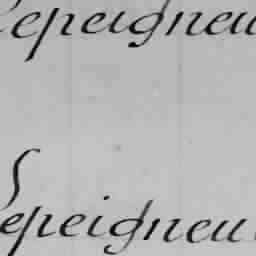 Lepeigneu
Lepeigneu